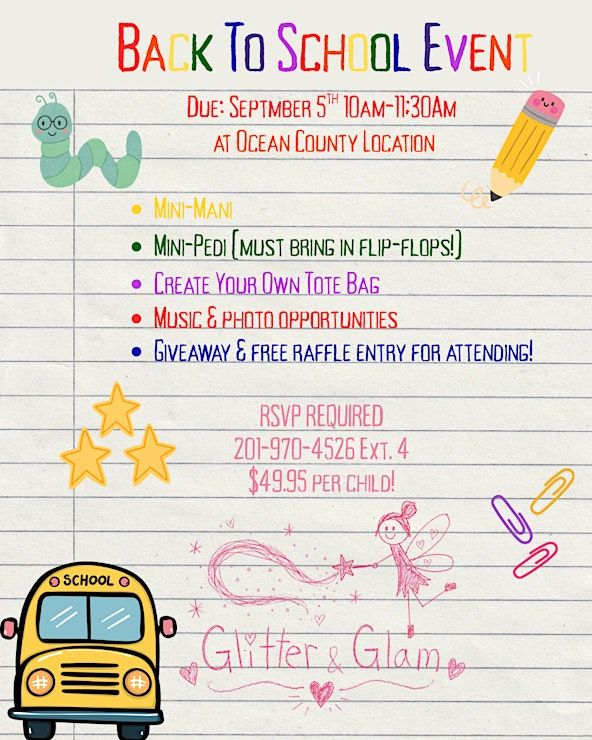 Back To School Event
Due: Septmber 5th 10am-11:30Am
at Ocean County Location
• Mini-Mani
• Mini-Pedi (must bring in flip-flops!)
• Create Your Own Tote Bag
• Music & photo opportunities
• Giveaway & free raffle entry for attending!
RSVP REQUIRED
201-970-4526 Ext. 4
$49.95 per child!
SCHOOL
Glitter & Glam